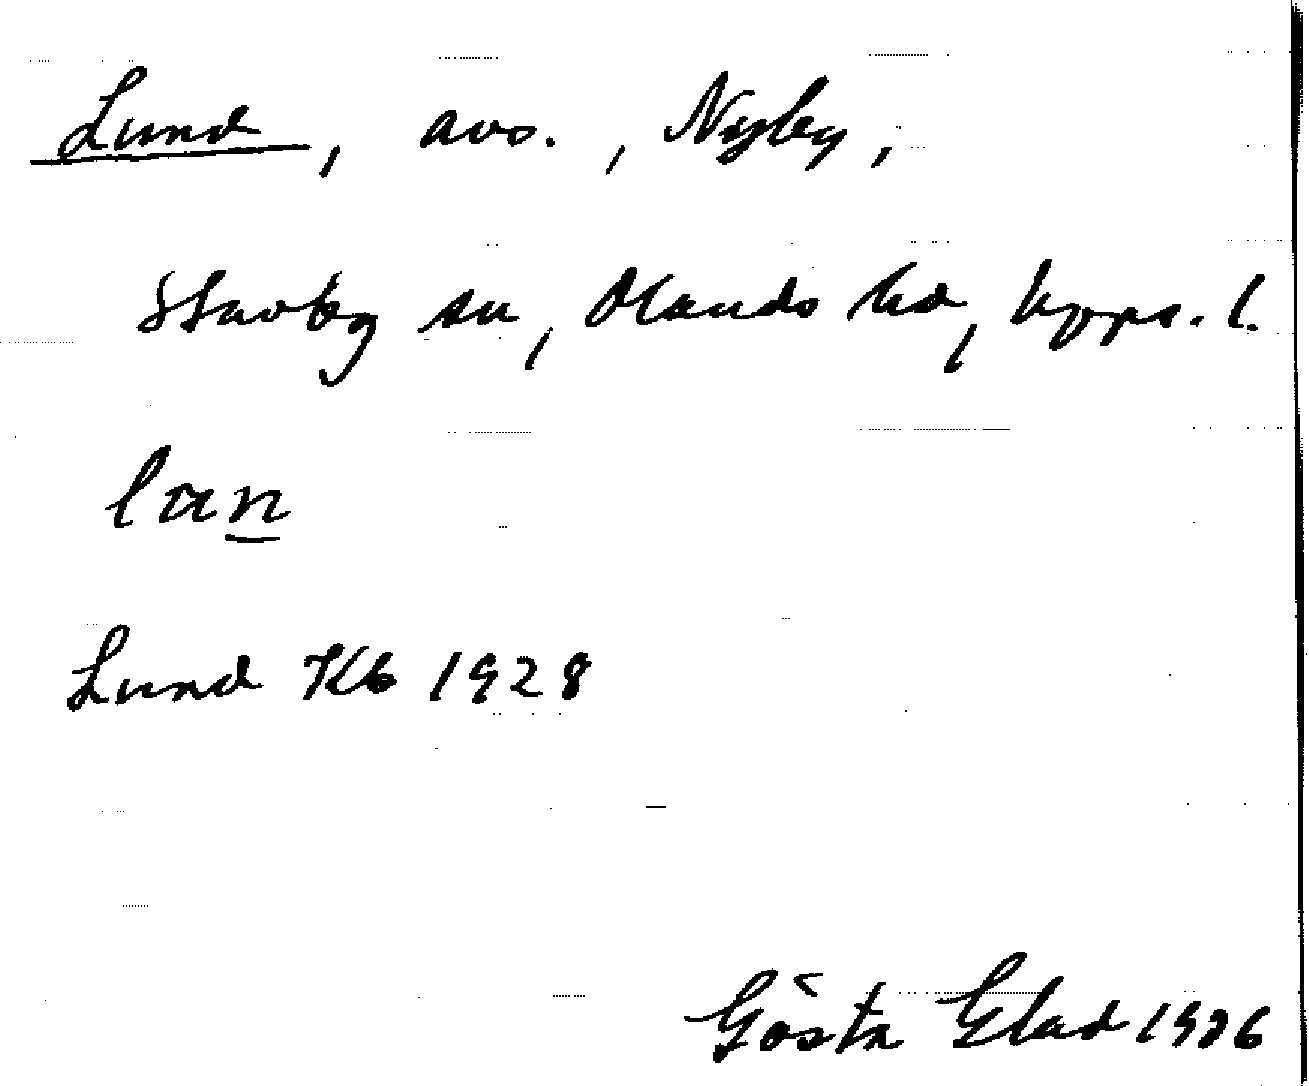 Lund, avs., Nyby,
Stavby sn, Olands hd, Upps. l.
lan
Lund Kb 1928
Gösta Elad 1936